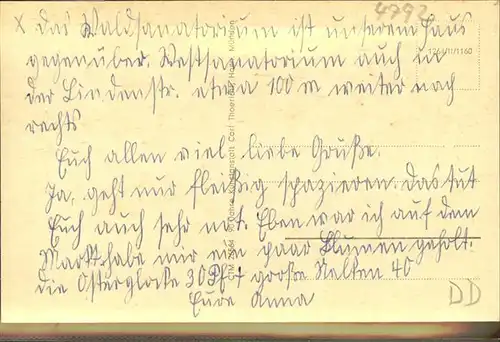 4792
x Das Waldsanatorium ist unserem Haus
gegenüber. Westsanatorium auch in
der Lindenstr. etwa 100 m weiter nach
rechts
Euch allen viel liebe Grüße.
Ja, geht nur fleißig spazieren. Das tut
Euch auch sehr not. Eben war ich auf dem
Markt habe mir ein paar Blumen geholt.
die Osterglocke 30 Pf. große Nelken 40
Eure Anna
DD